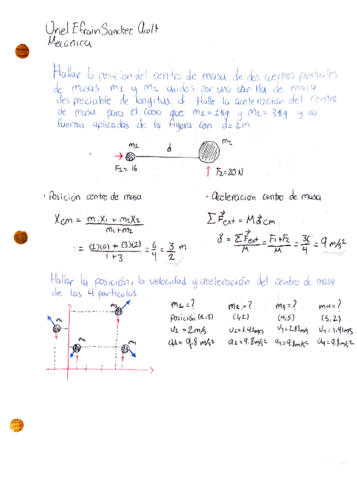 Uriel Efrain Sanchez Ault
Mecánica
Hallar la posicion del centro de masa de dos cuerpos puntuales
de masas m1 y m2 unidos por una varilla de masa
despreciable de longitud d Halle la aceleracion del centro
de masa para el caso que m1=1kg y m2=3kg y las
fuerzas aplicadas de la figura con d=2m
m1
d
m2
F1=16
F2=20N
· Posición centro de masa
Xcm = m1X1 + m2X2 / m1+m2
= (1)(0) + (3)(2) / 1+3 = 6/4 = 3/2 m
· Aceleración centro de masa
∑F ext = M a cm
a = ∑F ext / M = F1+F2 / M = 36/4 = 9 m/s²
Hallar la posición, la velocidad y aceleración del centro de masa
de las 4 particulas
m1=? m2=? m3=? m4=?
posición (1,3) (4,2) (4,5) (5,2)
V1=2m/s V2=1.41m/s V3=2.83m/s V4=1.41m/s
a1=9.8m/s² a2=9.8m/s² a3=9.8m/s² a4=9.8m/s²